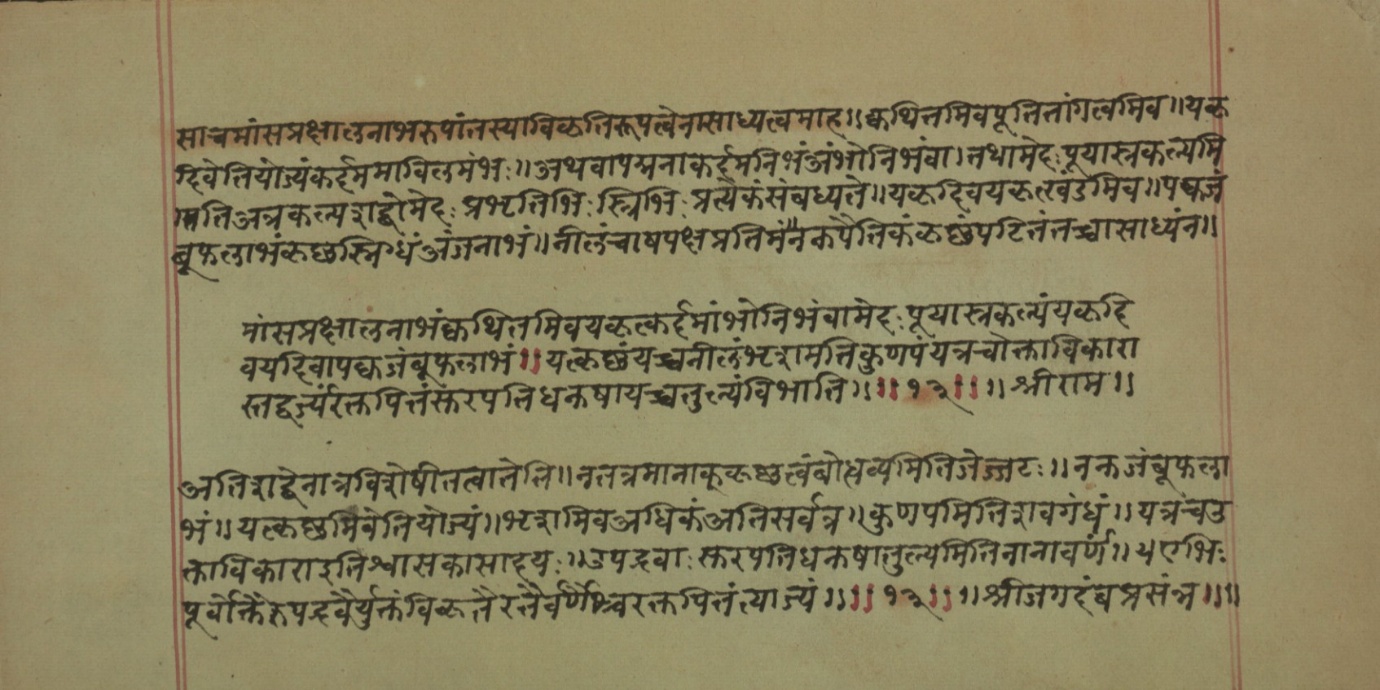 साचमांसप्रक्षालनाभरुपांतस्याविकृतिरूपत्वेनास्साध्यत्वमाह॥क्वथितमिवपूतितांगत्वमिव॥यकृ
द्दिवेतियोज्यंकर्द्दममाविलमंभः॥अथवापद्मनाकर्द्दमनिभंअंभोनिभंवा।तथामेहःपूयास्त्रकल्पमि
तिअत्रकल्पशब्दोमेहःप्रभृतिभिःस्त्रिभिःप्रत्येकंसंबध्यते॥यकृद्दिवयकृत्खंडमिव॥पक्वजं
बूफलाभंकृष्णस्निग्धंअंजनाभं॥नीलंचाषपक्षप्रतिमंनैनकपैतिकंकृष्णंपटितंतच्चासाध्यंन॥
मांसप्रक्षालनाभंक्वथितमिवयकृत्कर्द्दमांभोनिभंवामेहःपूयास्त्रकल्पंयकृद्दि
वयदिवापक्वजंबूफलाभं॥यत्कृष्णंयच्चनीलंभृशमतिकुणपंयत्रचोक्ताविकारा
स्तद्वर्ज्यंरक्तपित्तंस्करपतिधनुषायच्चतुल्यंविभाति॥॥१३॥॥श्रीराम॥
अतिशब्देनात्रविशेषीतत्वातेति॥नतत्रमानाकूकृष्णत्वंबोधव्यमितिजेज्जटः॥नकजंबूफला
भं॥यत्कृष्णमिवेतियोज्यं॥भृशमिवअधिकंअतिसर्वत्र॥कुणपमितिशवगंधं॥यत्रचउ
क्ताविकाराइतिश्वासकासादयः॥उपद्रवाःस्करपतिधनुषातुल्यमितिनानावर्णं॥यएभिः
पूर्वोक्तैरुपद्रवैर्युक्तंविकृतैरतैर्वर्णैश्चिवरक्तपित्तंत्याज्यं॥॥१३॥॥श्रीजगदंबप्रसंन्न॥॥